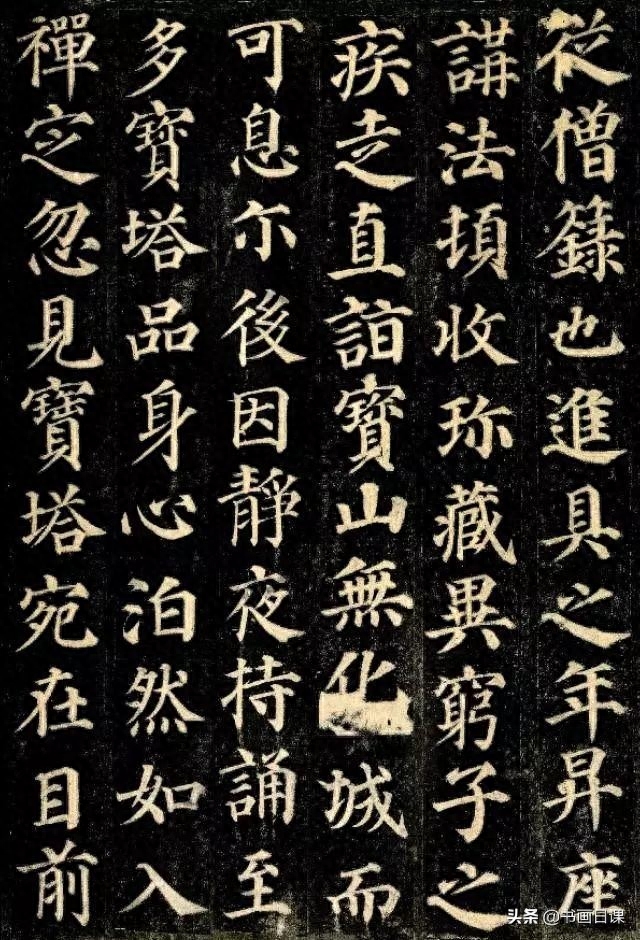 從僧籙也進具之年昇座
講法頓收珎藏異窮子之
疾走直詣寶山無化城而
可息尒後因靜夜持誦至
多寶塔品身心泊然如入
禪定忽見寶塔宛在目前
头条 @书画日课